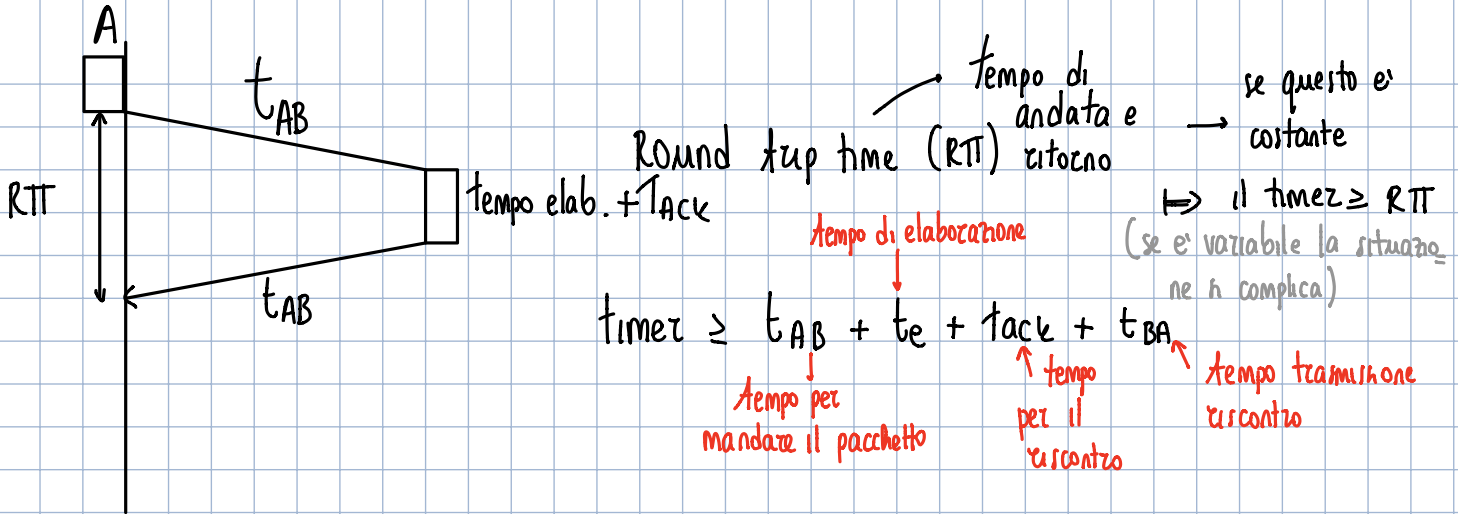 A
t_AB
RTT
tempo elab. + T_ACK
t_AB
Round trip time (RTT)
tempo di
andata e
ritorno
se questo e'
costante
il timer ≥ RTT
(se e' variabile la situazio
ne si complica)
tempo di elaborazione
timer ≥ t_AB + t_e + tack + t_BA
tempo per
mandare il pacchetto
tempo
per il
riscontro
tempo trasmissione
riscontro